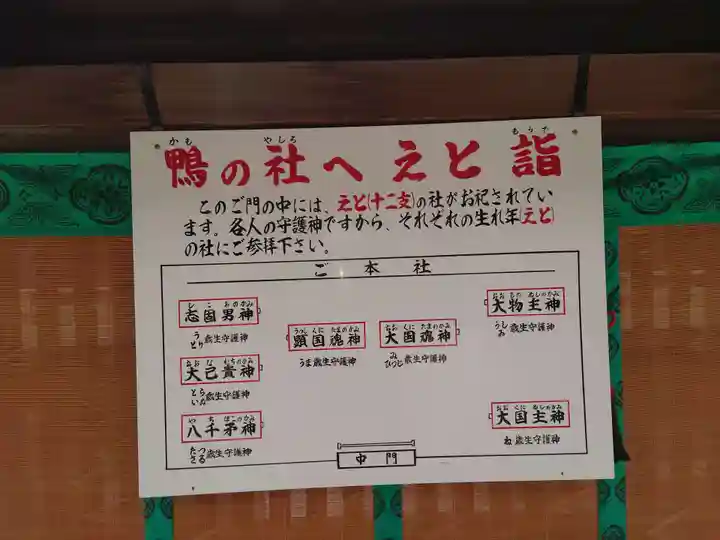 鴨の社へえと詣
かも やしろ もうで
このご門の中には、えと(十二支)の社がお祀されてい
ます。各人の守護神ですから、それぞれの生れ年(えと)
の社にご参拝下さい。
ご本社
しこ おのかみ
志固男神
うとり歳生守護神
おおな むちのかみ
大己貴神
とらいぬ歳生守護神
やち ほこのかみ
八千矛神
たつさる歳生守護神
うつしくに たまのかみ
顕国魂神
うま歳生守護神
おおくに たまのかみ
大国魂神
みひつじ歳生守護神
大物主神
うしゐ歳生守護神
おおくに ぬしのかみ
大国主神
ね歳生守護神
中門